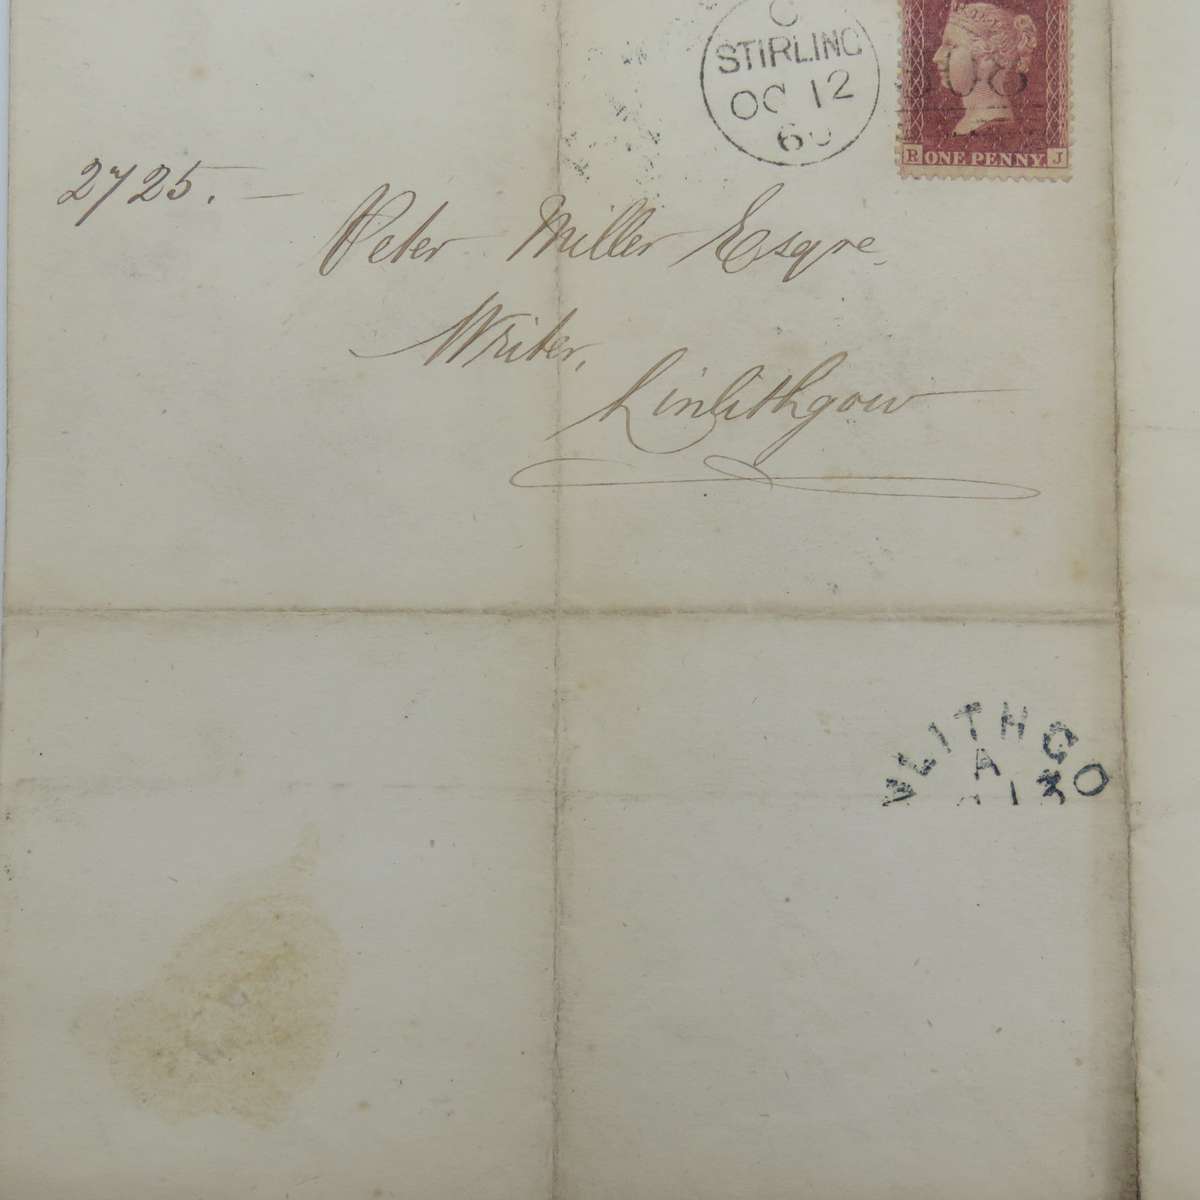 C
STIRLING
OC 12
60
308
R ONE PENNY J
2725. —
Peter Miller Esqre.
Writer,
Linlithgow
NLITHGO
A
13